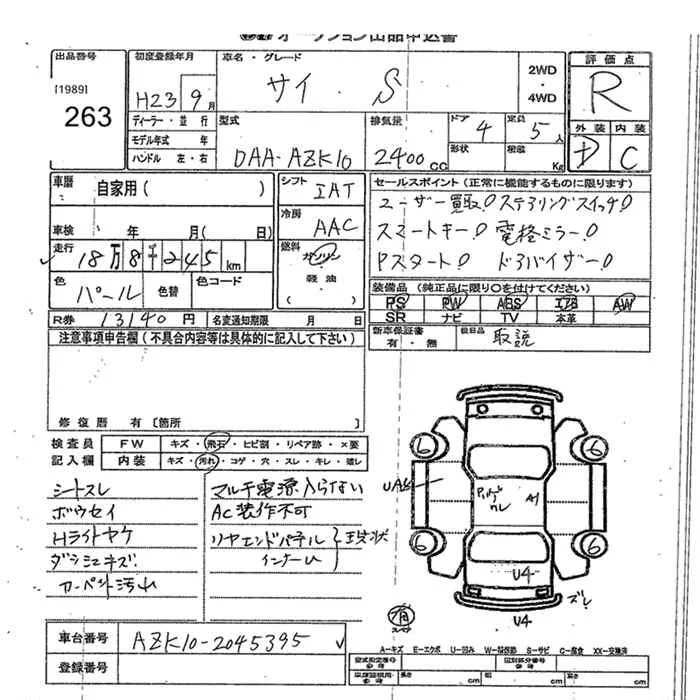 オークション出品申込書
出品番号 初度登録年月 車名・グレード 2WD ・ 4WD 評価点
[1989]
263
H23 9月 サイ S R
ディーラー・並行 型式 排気量 ドア 4 定員 5人 外装 内装
モデル年式 年 形状 積載 Kg
ハンドル 左・右 DAA-AZK10 2400cc D C
車歴 自家用( ) シフト IAT セールスポイント(正常に機能するものに限ります)
ユーザー買取! ステアリングスイッチ!
車検 年 月( 日) 冷房 AAC スマートキー! 電格ミラー!
走行 18万8千245km 燃料 ガソリン ・ 軽油 Pスタート! ドアバイザー!
色 パール 色替 色コード 装備品(純正品に限り○を付けてください)
PS PW ABS エアB AW
SR ナビ TV 本革
R券 13140円 名変通知期限 月 日 新車保証書 有・無 後日品 取説
注意事項申告欄(不具合内容等は具体的に記入して下さい)
修復歴 有[箇所 ]
検査員 FW キズ・飛石・ヒビ割・リペア跡・×要
記入欄 内装 キズ・汚れ・コゲ・穴・スレ・キレ・雑レ
シートスレ マルチ電源入らない
ボウセイ AC装作不可
Hライトヤケ リヤエンドパネル 現状
ダッシュキズ インナーU
カーペット汚れ
6 6
6 6
UA
A1
U4
ズレ
U4
車台番号 AZK10-2045395
登録番号
A-キズ E-エクボ U-凹み W-補修跡 S-サビ C-腐食 XX-交換済
型式指定番号 類別区分番号
長さ cm 幅 cm 高さ cm